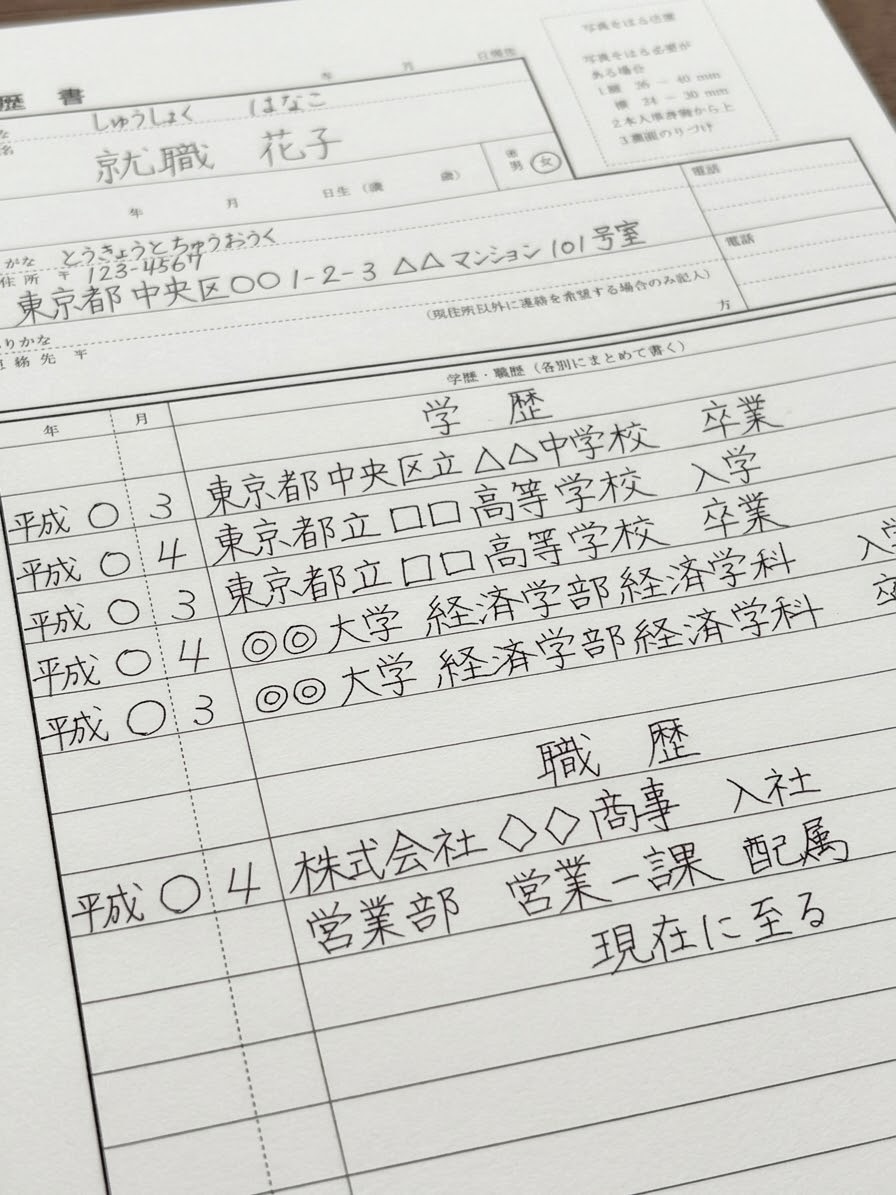 歴 書
年 月 日現在
写真をはる位置
写真をはる必要が
ある場合
1.縦 36 ～ 40 mm
横 24 ～ 30 mm
2.本人単身胸から上
3.裏面のりづけ
な しゅうしょく はなこ
名 就職 花子
年 月 日生（満 歳）
男 女
がな とうきょうとちゅうおうく
電話
住所 〒 123-4567
東京都 中央区〇〇 1-2-3 △△マンション 101号室
電話
りがな
（現住所以外に連絡を希望する場合のみ記入）
絡先 〒
方
学歴・職歴（各別にまとめて書く）
年 月
学 歴
平成 〇 3 東京都中央区立 △△中学校 卒業
平成 〇 4 東京都立 □□ 高等学校 入学
平成 〇 3 東京都立 □□ 高等学校 卒業
平成 〇 4 ◎◎ 大学 経済学部経済学科 入学
平成 〇 3 ◎◎ 大学 経済学部経済学科
職 歴
平成 〇 4 株式会社 ◇◇ 商事 入社
営業部 営業一課 配属
現在に至る